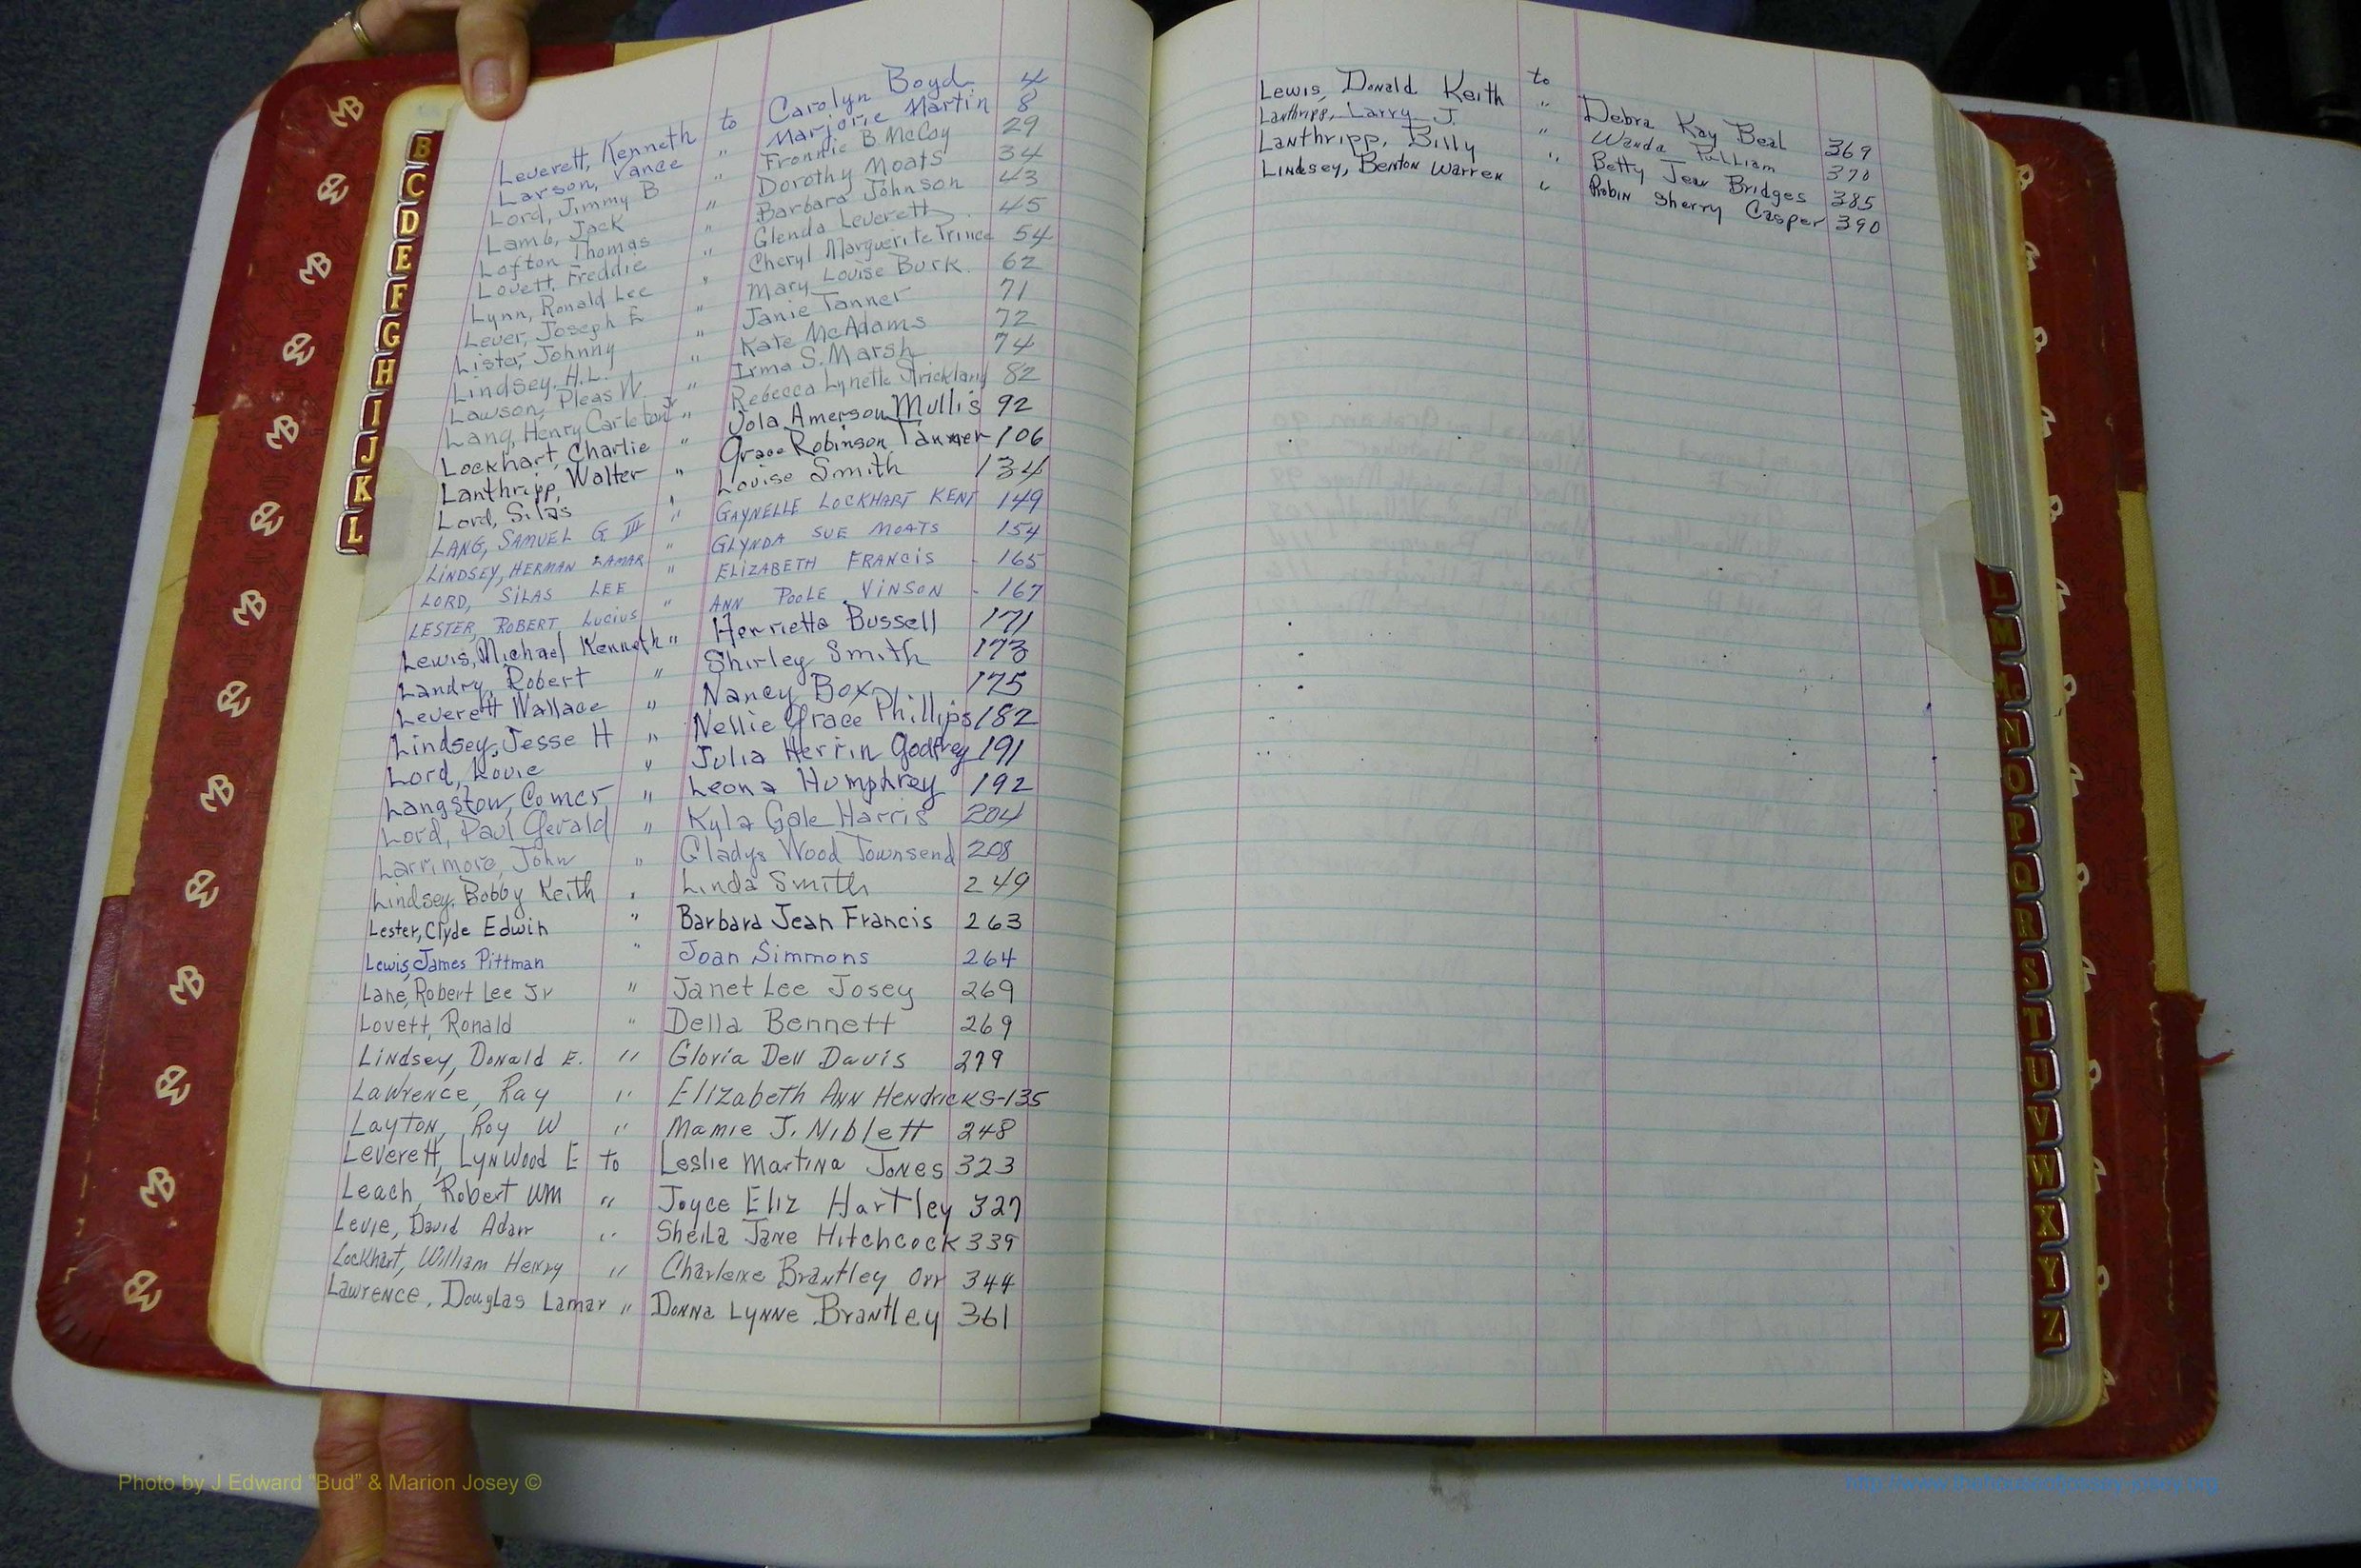 Leverett, Kenneth to Carolyn Boyd 4
Larson, Vance " Marjorie Martin 8
Lord, Jimmy B " Fronnie B McCoy 29
Lamb, Jack " Dorothy Moats 34
Lofton Thomas " Barbara Johnson 43
Lovett, Freddie " Glenda Leverett 45
Lynn, Ronald Lee " Cheryl Marguerite 54
Lever, Joseph E " Mary Louise Burk. 62
Lister, Johnny " Janie Tanner 71
Lindsey, H.L. " Kate McAdams 72
Lawson, Pleas W " Irma S. Marsh 74
Lang, Henry Carleton Jr " Rebecca Lynette Strickland 82
Lockhart, Charlie " Jola Amerson Mullis 92
Lanthripp, Walter " Grace Robinson Tanner 106
Lord, Silas " Louise Smith 134
LANG, SAMUEL G III " GAYNELLE LOCKHART KENT 149
LINDSEY, HERMAN LAMAR " GLYNDA SUE MOATS 154
LORD, SILAS LEE " ELIZABETH FRANCIS - 165
LESTER, ROBERT Lucius " ANN POOLE VINSON - 167
Lewis, Michael Kenneth " Henrietta Bussell 171
Landry, Robert " Shirley Smith 173
Leverett Wallace " Nancy Box 175
Lindsey, Jesse H " Nellie Grace Phillips 182
Lord, Louie " Julia Herrin Godfrey 191
Langston, Comer " Leona Humphrey 192
Lord, Paul Gerald " Kyla Gale Harris 204
Larrimore, John " Gladys Wood Townsend 208
Lindsey, Bobby Keith " Linda Smith 249
Lester, Clyde Edwin " Barbara Jean Francis 263
Lewis, James Pittman " Joan Simmons 264
Lane, Robert Lee Jr " Janet Lee Josey 269
Lovett, Ronald " Della Bennett 269
Lindsey, Donald E. " Gloria Dell Davis 279
Lawrence, Ray " Elizabeth Ann Hendricks-135
Layton, Roy W " Mamie J. Niblett 248
Leverett, Lynwood E to Leslie Martina Jones 323
Leach, Robert Wm " Joyce Eliz Hartley 327
Levie, David Adam " Sheila Jane Hitchcock 339
Lockhart, William Henry " Charlene Brantley Orr 344
Lawrence, Douglas Lamar " Donna Lynne Brantley 361
Lewis, Donald Keith to Debra Kay Beal 369
Lanthripp, Larry J. " Wanda Pulliam 370
Lanthripp, Billy " Betty Jew Bridges 385
Lindsey, Benton Warren " Robin Sherry Casper 390
B
C
D
E
F
G
H
I
J
K
L
L
M
Mc
N
O
P
Q
R
S
T
U
V
W
X
Y
Z
Photo by J Edward "Bud" & Marion Josey ©